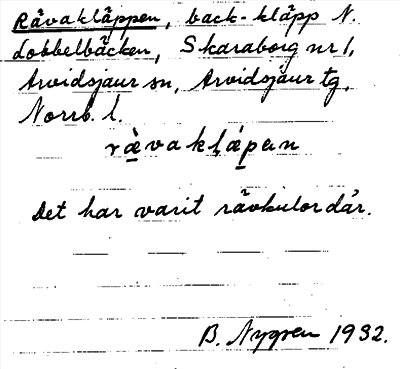 Rävakläppen, back-kläpp N.
Lobbelbäcken, Skaraborg nr 1,
Arvidsjaur sn, Arvidsjaur tg,
Norrb. l.
rävakläpen
Det har varit rävkulor där.
B. Nygren 1932.